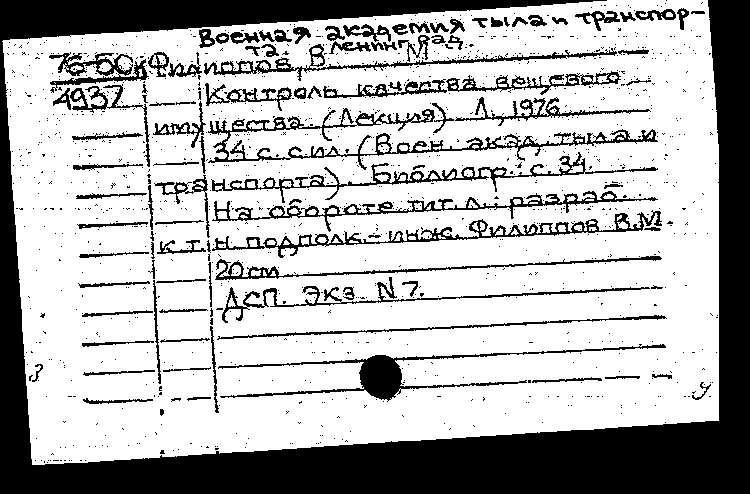 Военная академия тыла и транспор-
та. Ленинград.
76-50к Филиппов, В М
4937 Контроль качества вещевого
имущества. (Лекция) Л., 1976
34 с. с ил. (Воен. акад. тыла и
транспорта). Библиогр.: с. 34.
На обороте тит. л.: разраб.
к.т.н. подполк.-инж. Филиппов В.М.
20 см
ДСП. Экз N 7.
З
У